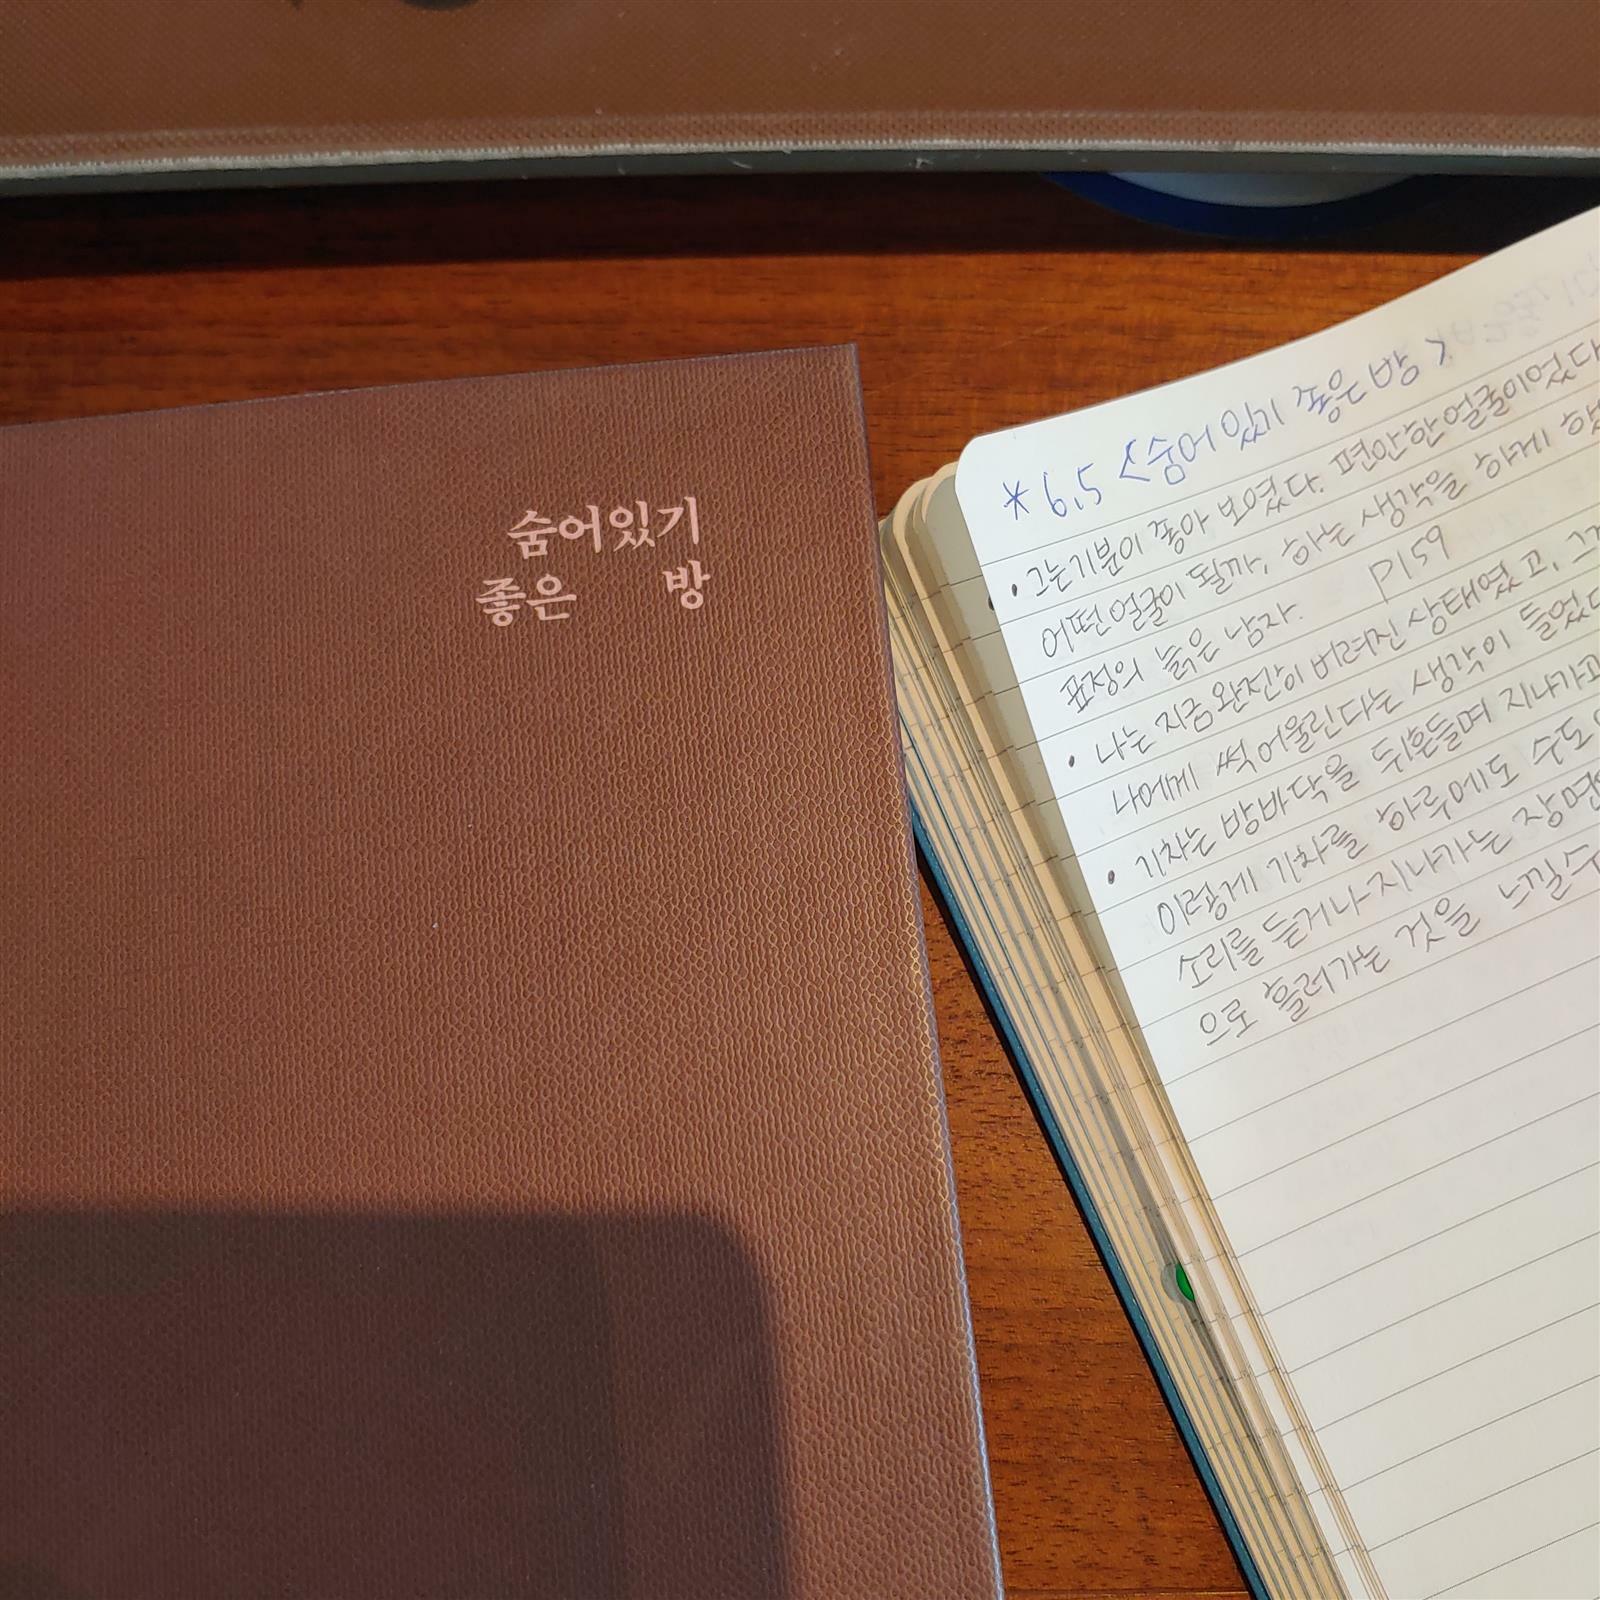 숨어있기
좋은 방
* 6.5 <숨어있기 좋은 방>
• 그는 기분이 좋아 보였다. 편안한 얼굴이었다
어떤 얼굴이 될까, 하는 생각을 하게 했
표정의 늙은 남자. P159
• 나는 지금 완전히 버려진 상태였고, 그게
나에게 썩 어울린다는 생각이 들었다
• 기차는 방바닥을 뒤흔들며 지나가고
이렇게 기차를 하루에도 수도
소리를 듣거나 지나가는 장면
으로 흘러가는 것을 느낄 수